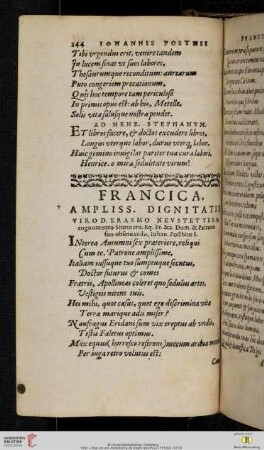 144 IOHANNIS POSTHII
Tibi vrgendus erit, venire tandem
In lucem sinas vt suos labores,
Thesaurumque reconditum: aurearum
Puto congeriem precationum,
Queis hoc tempore tam periculoso
In primis opus est: ab his, Metelle,
Solis vita salusque nostra pendet.
AD HENR. STEPHANVM.
ET libros facere, & doctos excudere libros,
Longus vterque labor, durus vterq; labor.
Haec gemino inuigilat pariter tua cura labori,
Henrice. o mira sedulitate virum!
FRANCICA.
AMPLISS. DIGNITATIS
VIRO D. ERASMO NEVSTETTER
cognomento
INterea Autumni sex praeteriere, reliqui
Cum te, Patrone amplissime,
Italiam iussuque tuo sumptuque secutus,
Doctor futurus & comes
Fratris, Apollineas coleret quo sedulus artes,
Vestigiis nitens tuis.
Hei mihi, quot casus, quot ego discrimina vitae
Terra marique adii miser?
Naufragus Eridani sum vix ereptus ab vndis,
Testis Faletus optimus.
Mox equus (horresco referens) mecum ardua
Per iuga retro volutus est: